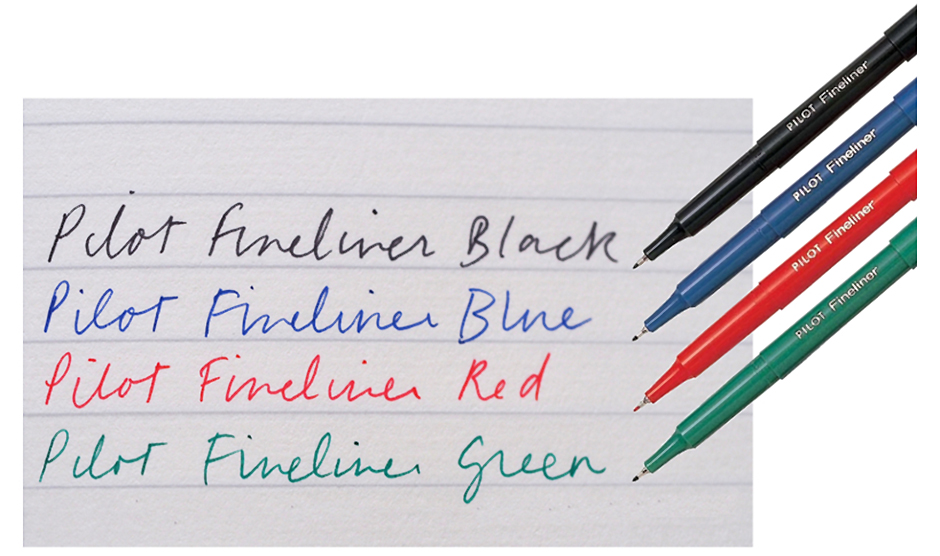 PILOT Fineliner
PILOT Fineliner
PILOT Fineliner
PILOT Fineliner
Pilot Fineliner Black
Pilot Fineliner Blue
Pilot Fineliner Red
Pilot Fineliner Green